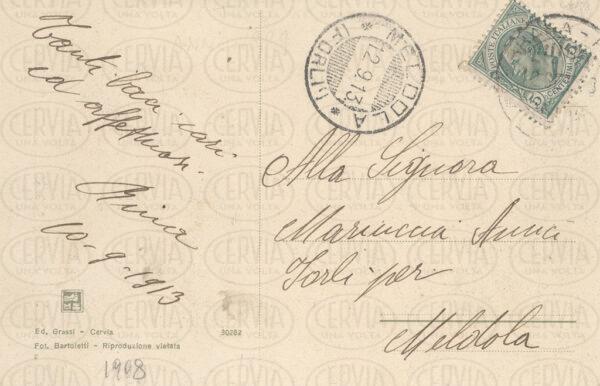 Tanti baci cari
ed affettuosi.
Nina
10-9-1913
MELDOLA
12.9.13
* (FORLÌ) *
POSTE ITALIANE
Alla Signora
Mariuccia
Forlì-per
Meldola
Ed. Grassi - Cervia
30282
Fot. Bartoletti - Riproduzione vietata
1908
CERVIA
UNA VOLTA